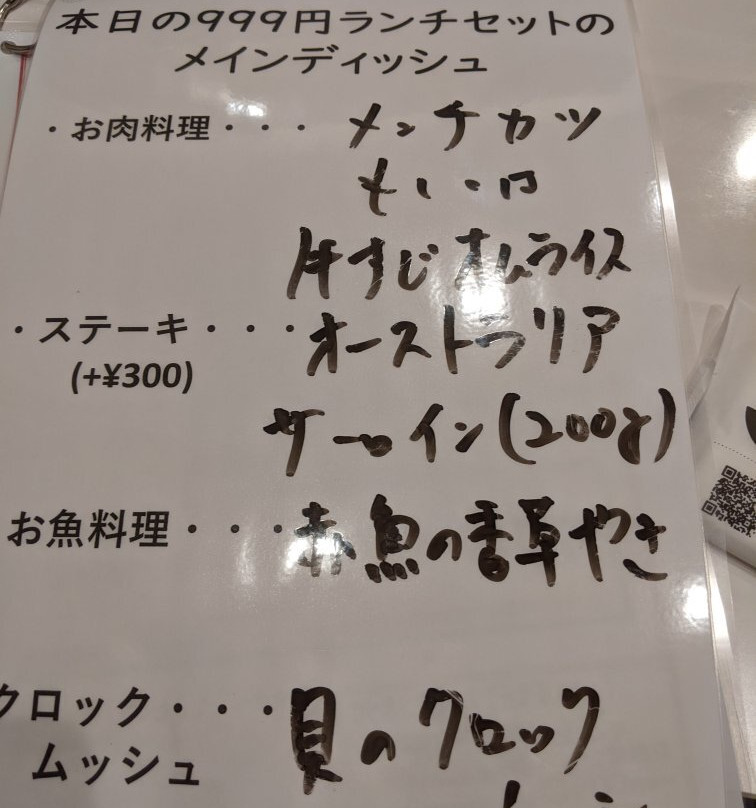 本日の999円ランチセットの
メインディッシュ
・お肉料理・・・メンチカツ
牛すじオムライス
・ステーキ・・・オーストラリア
(+¥300)
サーロイン(200g)
お魚料理・・・赤魚の香草やき
クロック・・・貝のクロック
ムッシュ